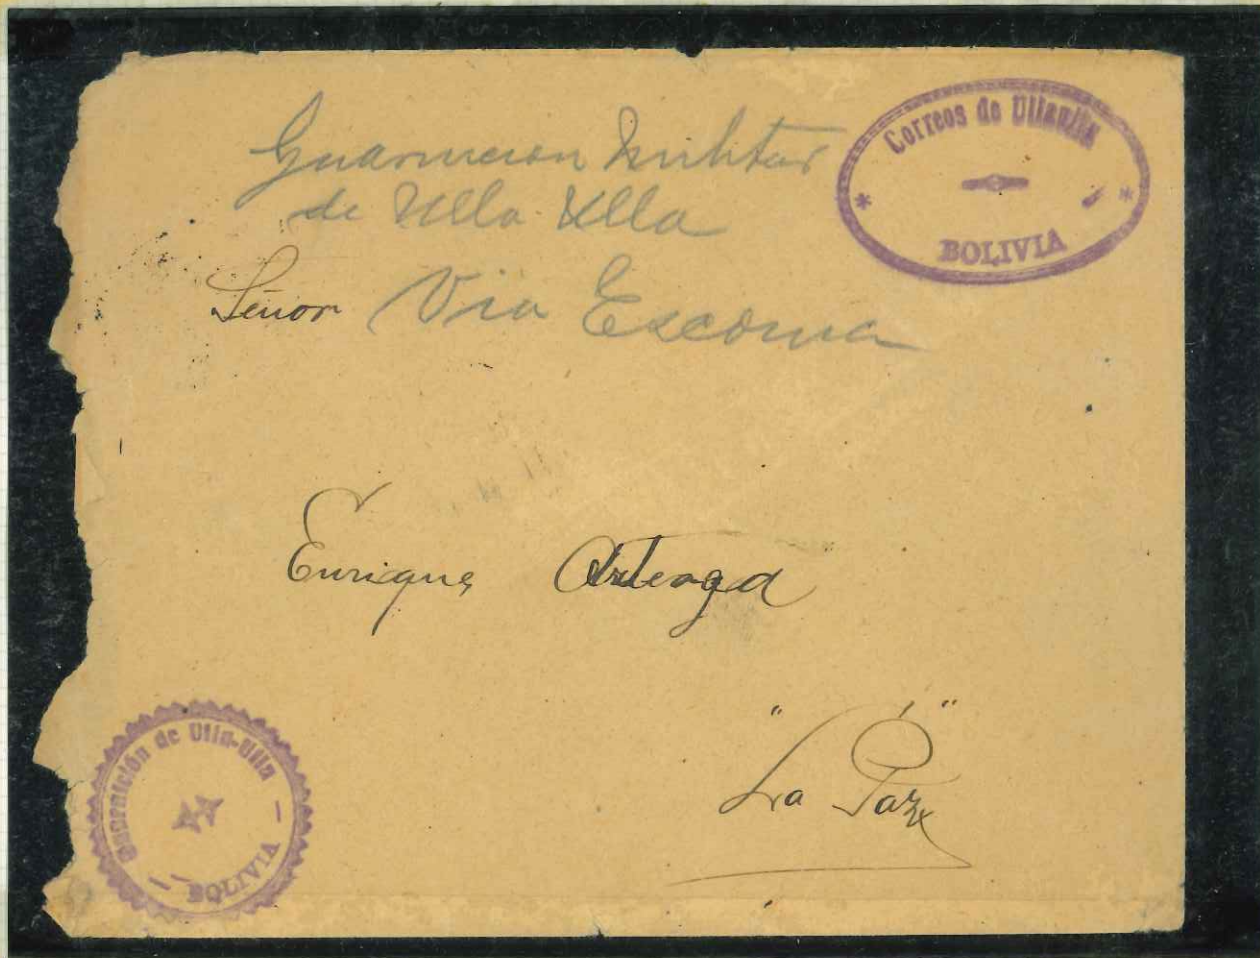 Guarnicion Militar
de Ulla Ulla
Correos de Ullaulla
BOLIVIA
Señor Via Escoma
Enrique Arteaga
"La Paz"
Guarnición de Ulla-Ulla
BOLIVIA